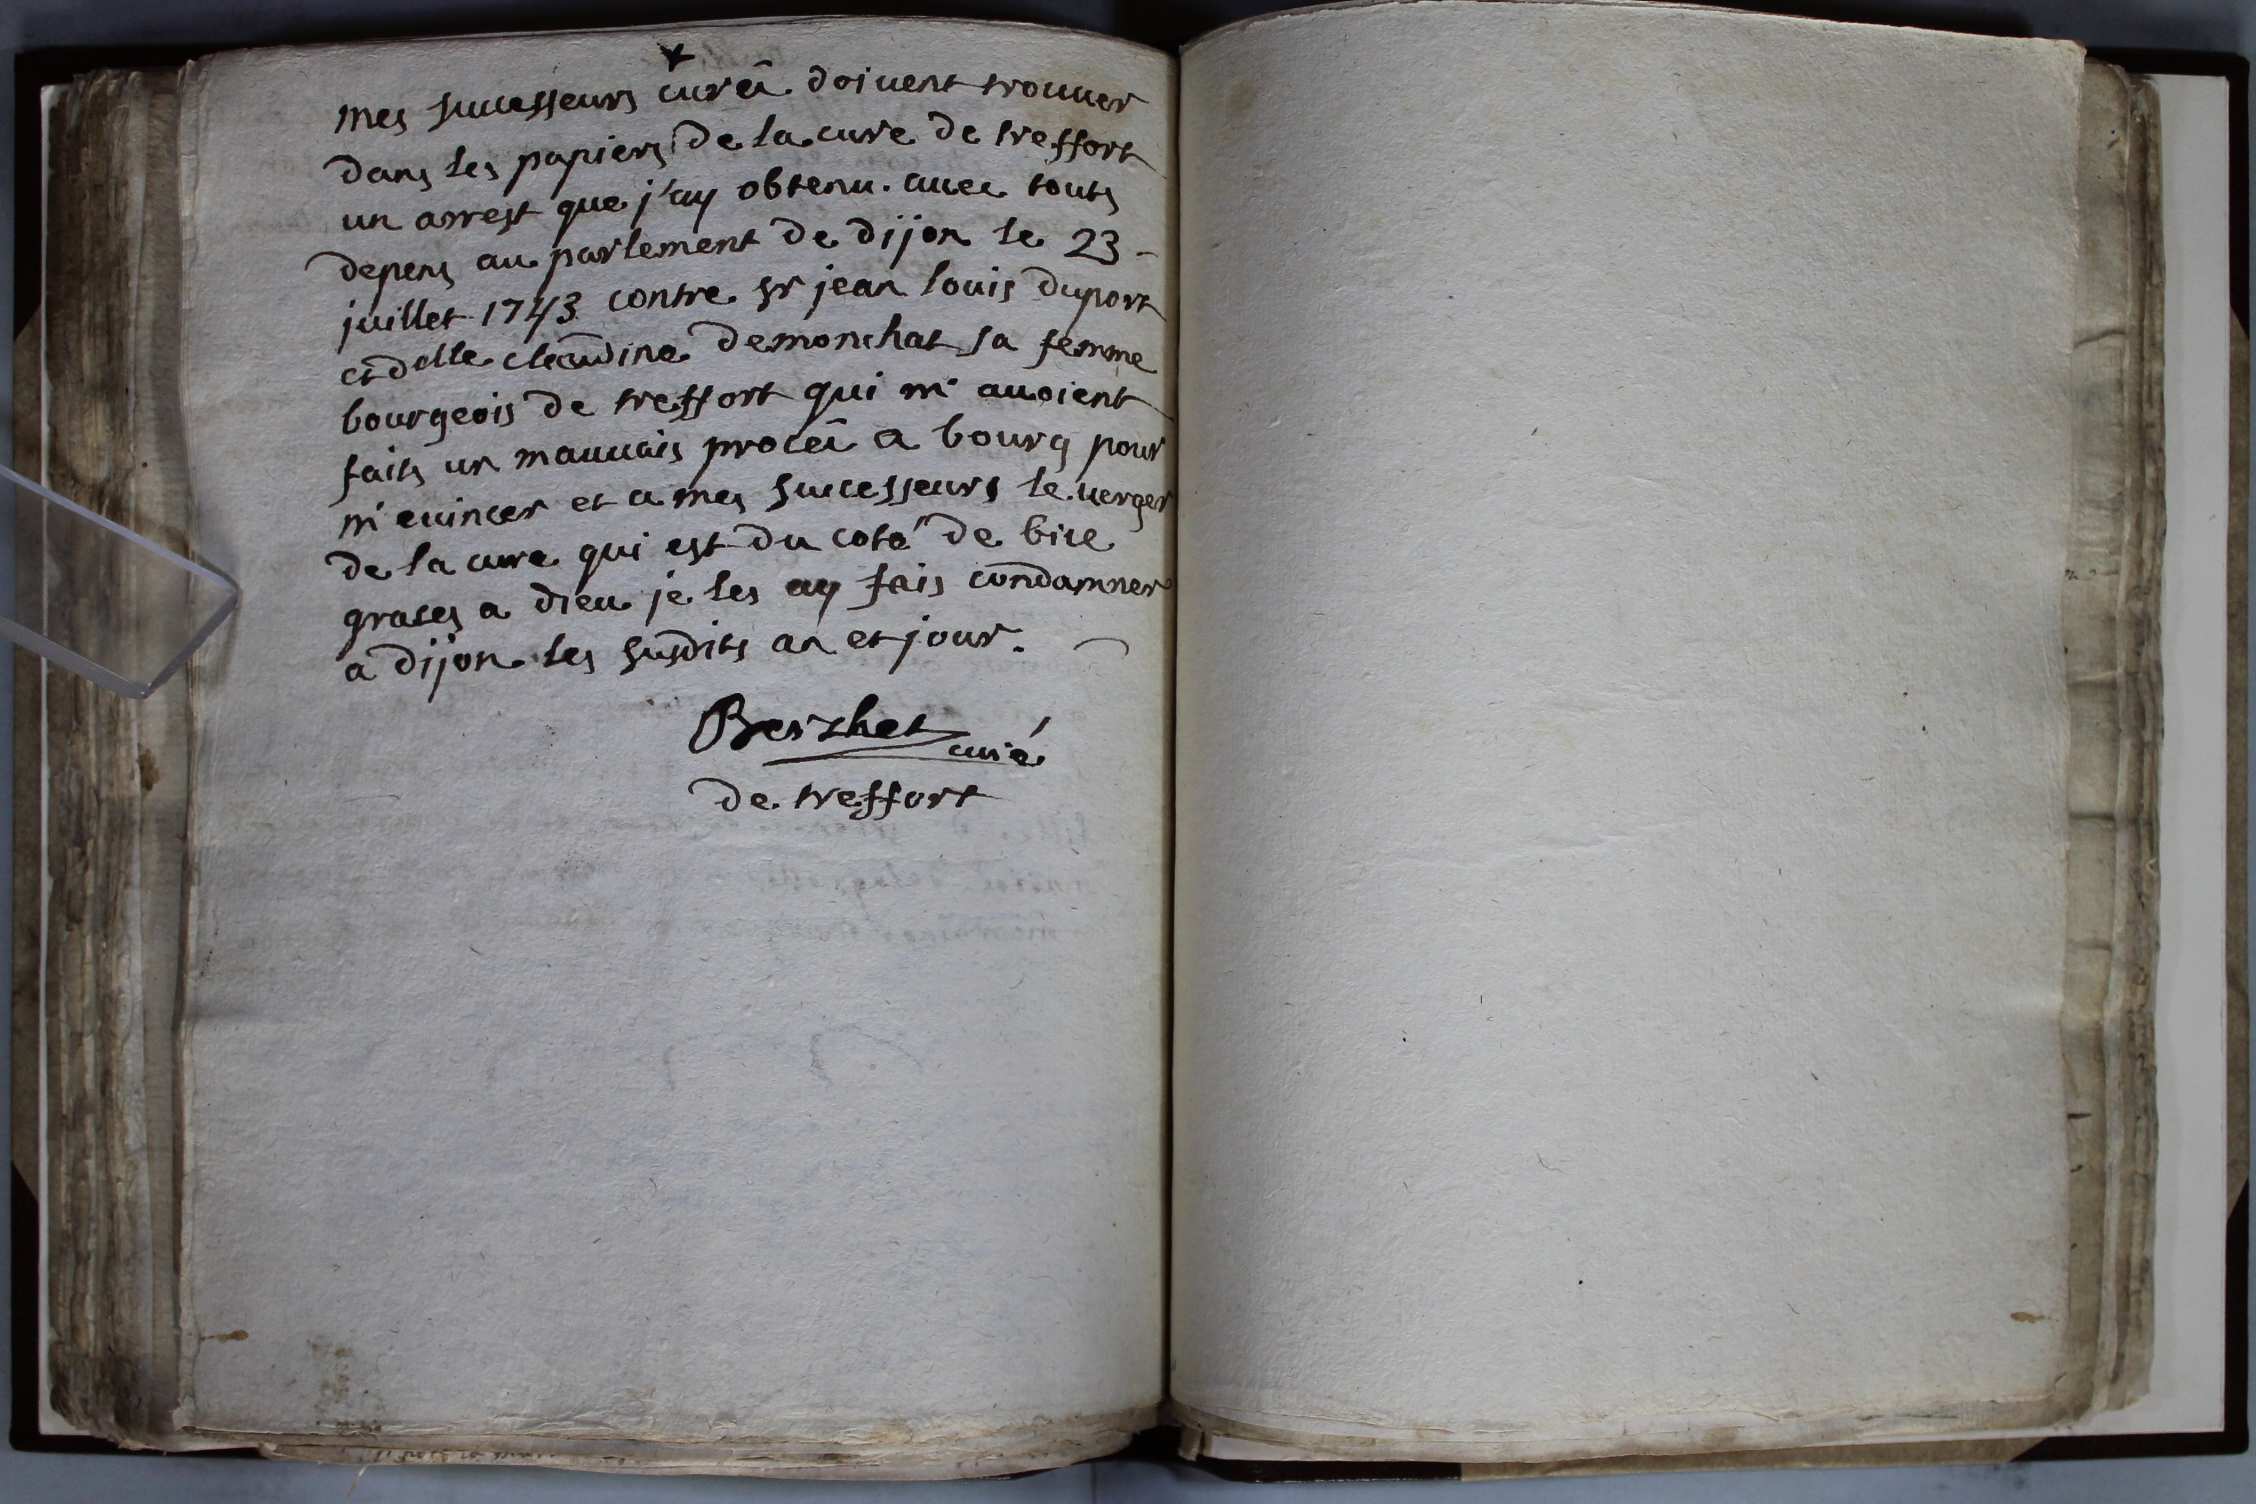 mes successeurs curéz doivent trouver
dans les papiers de la cure de treffort
un arrest que j'ay obtenu avec touts
depens au parlement de dijon le 23
juillet 1743 contre sr jean louis duport
et delle claudine demonchat sa femme
bourgeois de treffort qui m'avoient
faits un mauvais procéz a bourg pour
m'evincer et a mes successeurs le verger
de la cure qui est du coté de bise
graces a dieu je les ay fais condamner
a dijon les susdits an et jour.
Berthet curé
de treffort